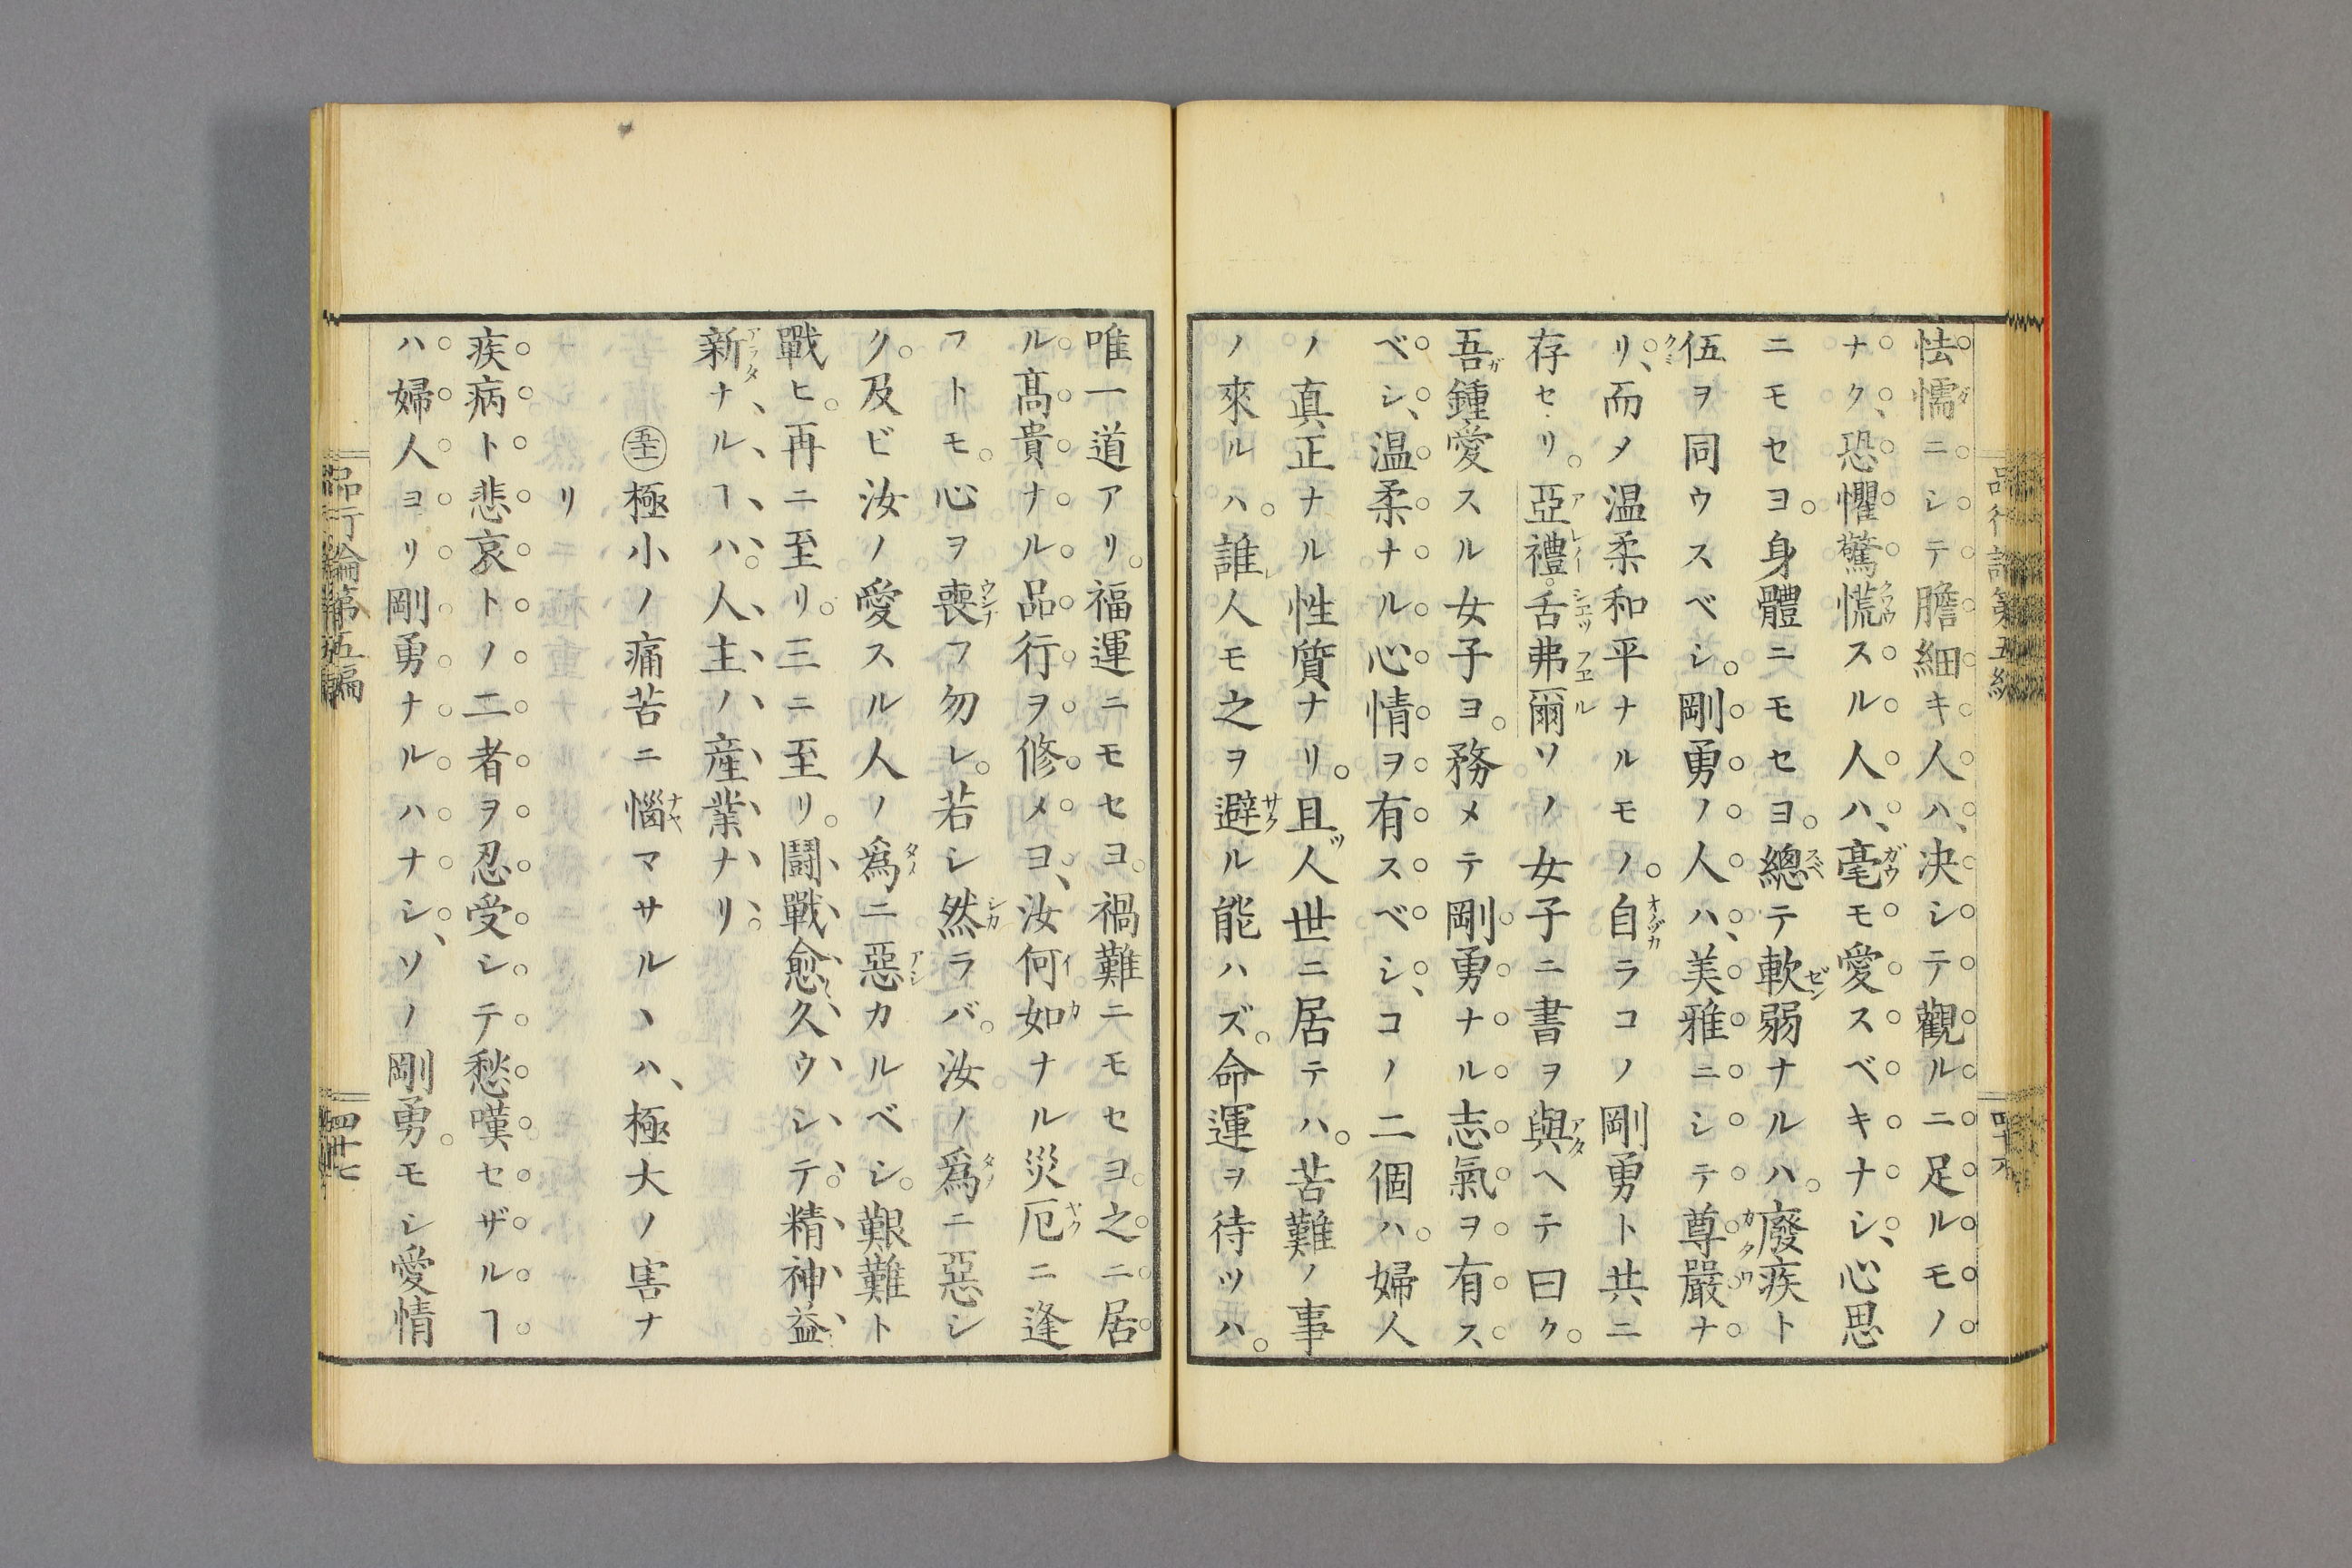 怯懦ニシテ膽細キ人ハ、決シテ觀ルニ足ルモノ
ナク、恐懼驚慌スル人ハ、毫モ愛スベキナシ、心思
ニモセヨ。身體ニモセヨ。總テ軟弱ナルハ。廢疾ト
伍ヲ同ウスベシ。剛勇ノ人ハ、美雅ニシテ尊嚴ナ
リ、而メ温柔和平ナルモノ。自ラコノ剛勇ト共ニ
存セリ。亞禮舌弗爾ソノ女子ニ書ヲ與ヘテ曰ク。
吾鍾愛スル女子ヨ。務メテ剛勇ナル志氣ヲ有ス
ベシ、温柔ナル心情ヲ有スベシ、コノ二個ハ婦人
ノ真正ナル性質ナリ。且人世ニ居テハ。苦難ノ事
ノ來ルハ。誰人モ之ヲ避ル能ハズ。命運ヲ待ツハ。
唯一道アリ。福運ニモセヨ。禍難ニモセヨ。之ニ居
ル髙貴ナル品行ヲ修メヨ、汝何如ナル災厄ニ逢
フトモ。心ヲ喪フ勿レ。若シ然ラバ。汝ノ爲ニ惡シ
ク。及ビ汝ノ愛スル人ノ爲ニ惡カルベシ。艱難ト
戰ヒ。再ニ至リ。三ニ至リ。鬪戰愈久ウシテ。精神益
新ナルヿハ。人主ノ産業ナリ。
㊄極小ノ痛苦ニ惱マサルヽハ、極大ノ害ナ
リ
疾病ト悲哀トノ二者ヲ忍受シテ愁嘆セザルヿ
ハ婦人ヨリ剛勇ナルハナシ、ソノ剛勇。モシ愛情
品行論第五編
四十七